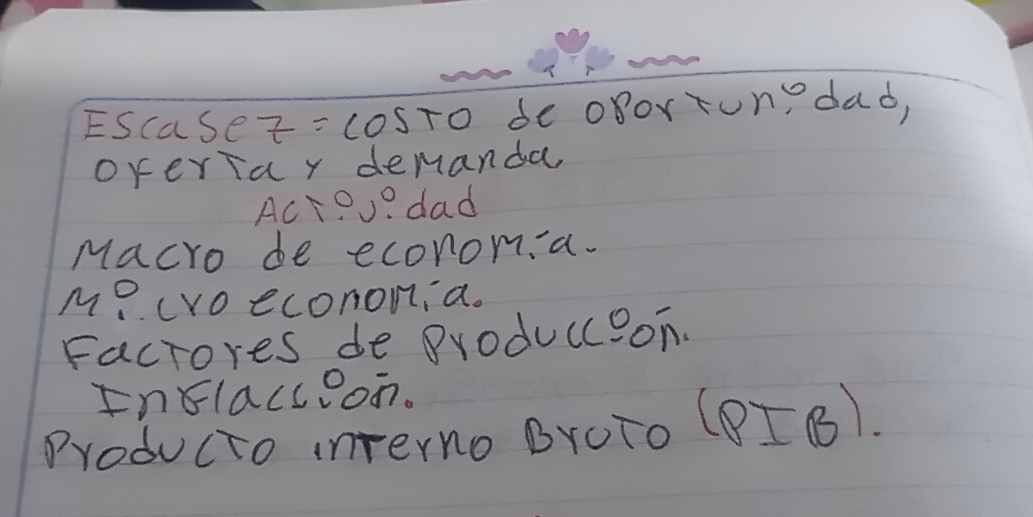 Escasez = costo de oportunidad,
oferta y demanda.
Actividad
Macro de economía.
Microeconomía.
Factores de Producción.
Inflacción.
Producto interno Bruto (PIB).